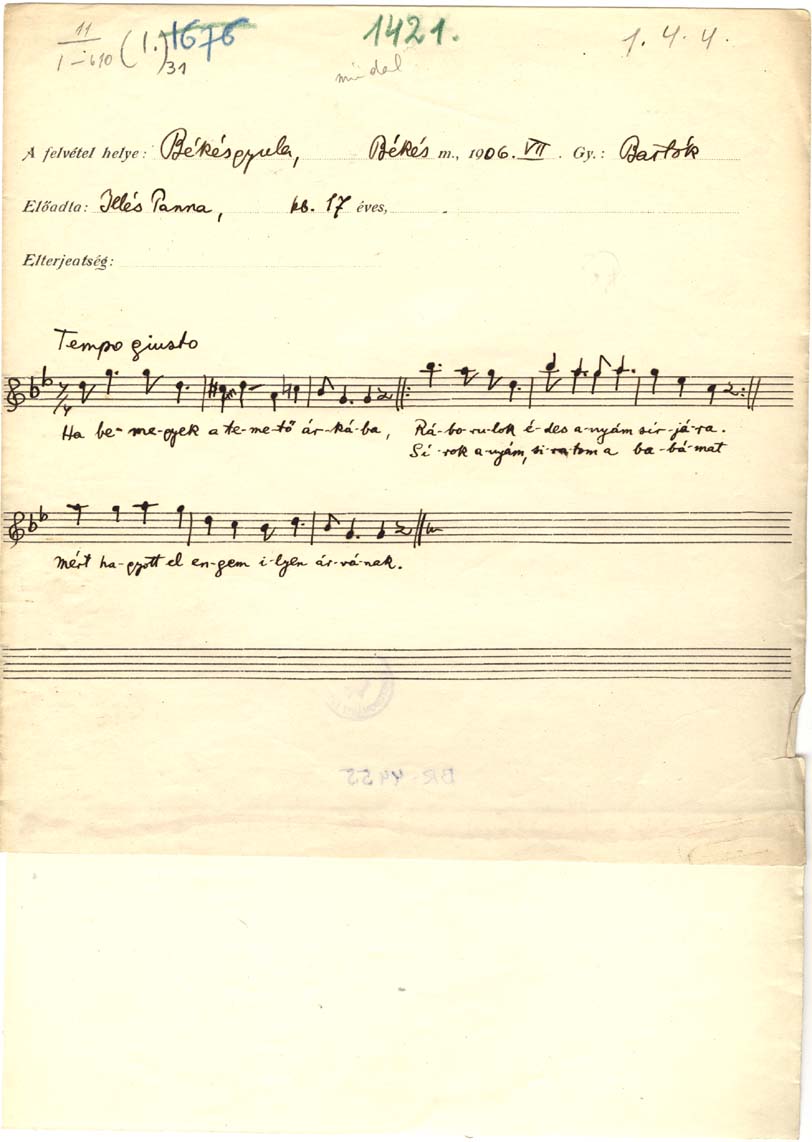 11
I–610 (I.) 31 1676 1421. 1. 4. 4.
műdal
A felvétel helye: Békésgyula, Békés m., 1906. VII. Gy.: Bartók
Előadta: Illés Panna, kb. 17 éves,
Elterjedtség:
Tempo giusto
Ha be-me-gyek a te-me-tő ár-ká-ba, Rá-bo-ru-lok é-des a-nyám sír-já-ra.
Sí-rok a-nyám, si-ra-tom a ba-bá-mat
mért ha-gyott el en-gem i-lyen ár-vá-nak.
BR-4455